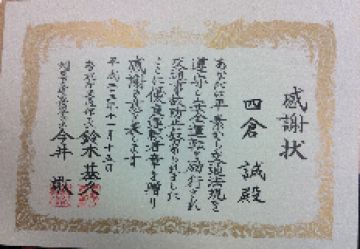 感謝状
四倉 誠殿
あなたは平素から交通法規を
遵守し安全運転を励行され
交通事故防止に努められました
ここに優良運転者章を贈り
感謝の意を表します
平成二十三年十一月十五日
鈴木基久
今井